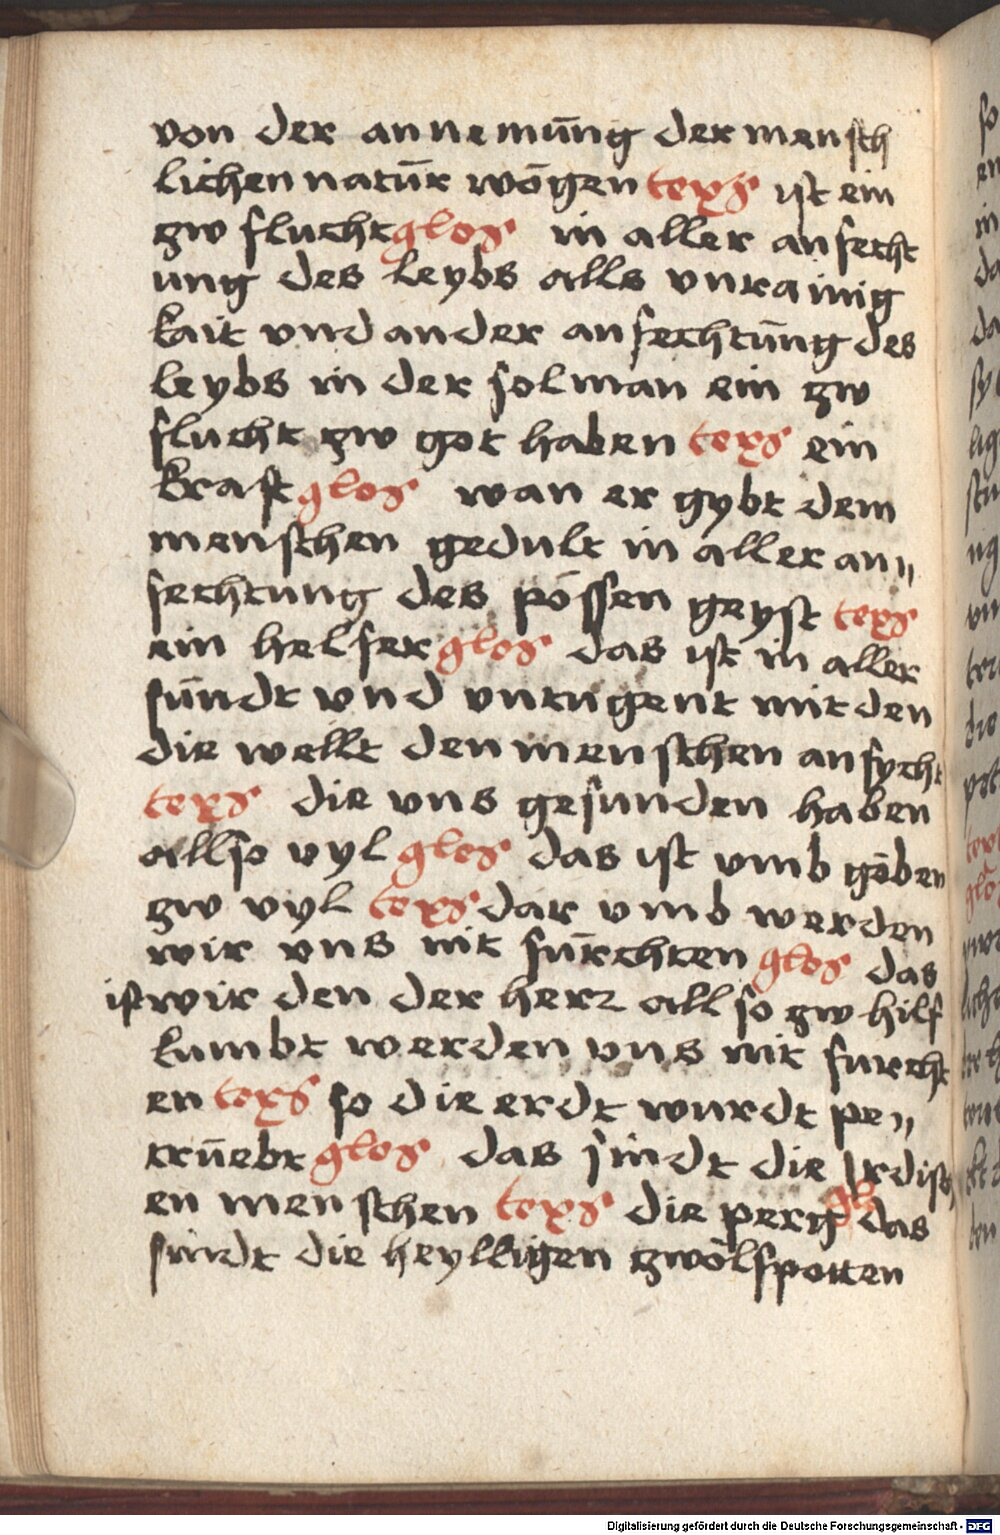 von der an ne mūng der mensch
lichen natūr wōgen texs ist ein
zw flucht glos in aller anfecht
ung des leybs alls vnrainig
kait vnd ander anfechtūng des
leybs in der sol man ein zw
flucht zw got haben texs ein
kraft glos wan er gybt dem
menschen gedult in aller an„
fechtung des pössen geyst texs
ein helfer glos das ist in aller
sūndt vnd vntugent mit den
die wellt den menschen anfycht
texs die vns gefunden haben
allso vyl glos das ist vmb göben
zw vyl texs dar vmb werden
wir vns nit fūrchten glos das
ist wir den der herr all so zw hilf
kumbt werden vns nit furcht
en texs so die erdt wurdt pe„
trūebt glos das sindt die Irdisch
en menschen texs die perg glo das
sindt die heylligen zwölfpotten
Digitalisierung gefördert durch die Deutsche Forschungsgemeinschaft - DFG